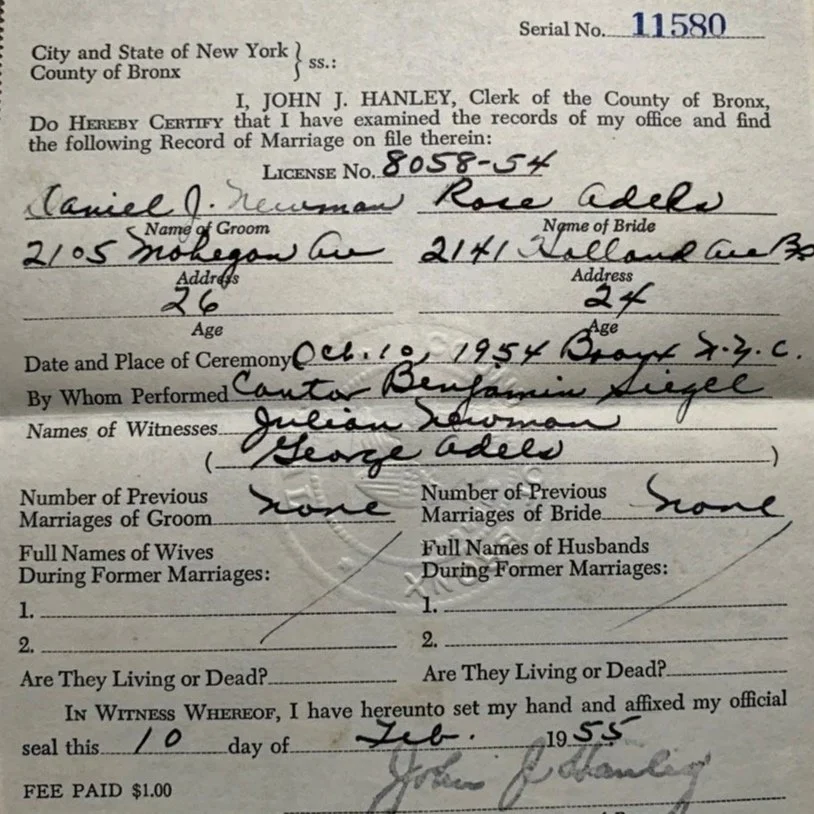 Serial No. 11580
City and State of New York } ss.:
County of Bronx
I, JOHN J. HANLEY, Clerk of the County of Bronx,
DO HEREBY CERTIFY that I have examined the records of my office and find
the following Record of Marriage on file therein:
LICENSE No. 8058-54
Daniel J. Newman Rose Adels
Name of Groom Name of Bride
2105 Mohegan Ave 2141 Holland Ave Bx
Address Address
26 24
Age Age
Date and Place of Ceremony Oct. 10, 1954 Bronx N.Y.C.
By Whom Performed Cantor Benjamin Siegel
Names of Witnesses Julian Newman
( George Adels )
Number of Previous Marriages of Groom none
Number of Previous Marriages of Bride none
Full Names of Wives During Former Marriages:
Full Names of Husbands During Former Marriages:
1. 1.
2. 2.
Are They Living or Dead? Are They Living or Dead?
IN WITNESS WHEREOF, I have hereunto set my hand and affixed my official
seal this 10 day of Feb. 1955
John J Hanley
FEE PAID $1.00